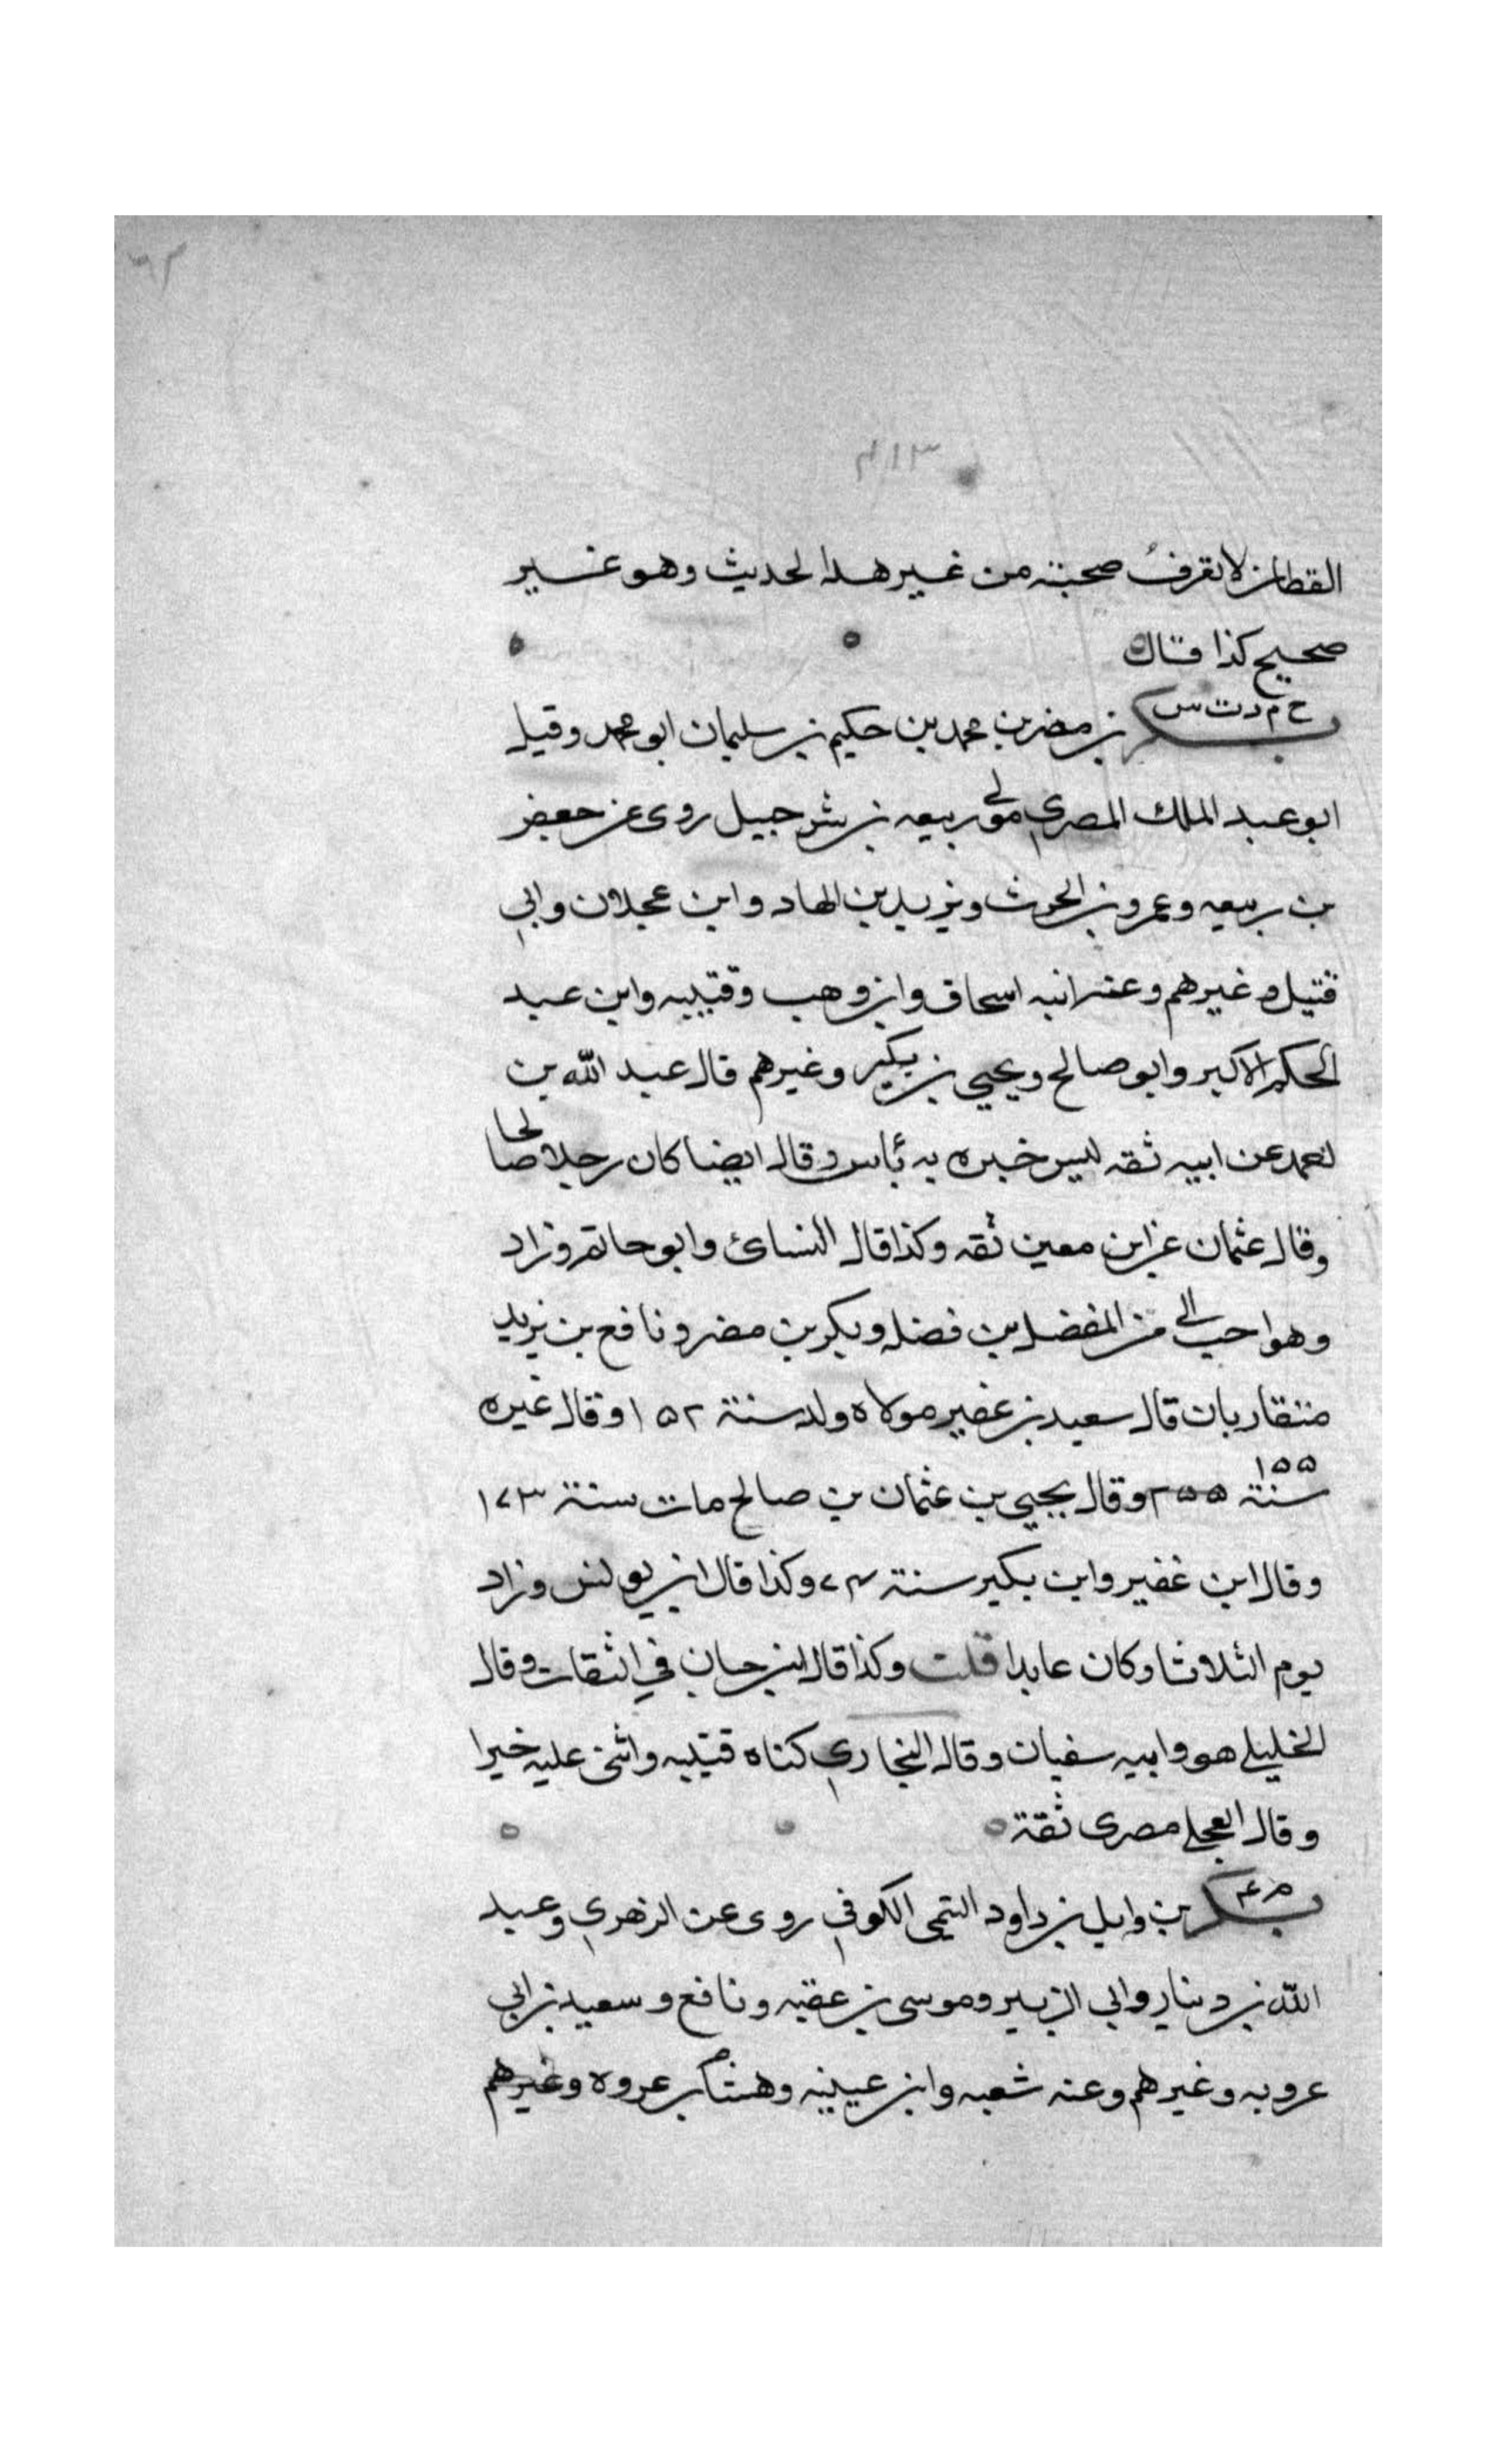 ٦٣
٤١٣
القطان لا تعرف صحبته من غير هذا الحديث وهو غير
صحيح كذا قال
خ م د ت س
بكر بن مضر بن محمد بن حكيم بن سليمان ابو محمد وقيل
ابو عبد الملك المصري مولى ربيعه بن شرحبيل روى عن جعفر
بن ربيعه وعمرو بن الحرث ويزيد بن الهاد وابن عجلان وابي
قتيل وغيرهم وعنه ابنه اسحاق وابن وهب وقتيبه وابن عبد
الحكم الاكبر وابو صالح ويحيى بن بكير وغيرهم قال عبد الله بن
احمد عن ابيه ثقه ليس خبره به بأس وقال ايضا كان رجلا صالحا
وقال عثمان عن ابن معين ثقه وكذا قال النسائ وابو حاتم وزاد
وهو احب الى من المفضل بن فضله وبكر بن مضر ونافع بن يزيد
متقاربان قال سعيد بن غفير مولاه ولد سنة ١٥٢ وقال غيره
١٥٥
سنة ٢٥٥ وقال يحيى بن عثمان بن صالح مات سنة ١٧٣
وقال ابن غفير وابن بكير سنة ٧٤ وكذا قال ابن يونس وزاد
يوم الثلاثا وكان عابدا قلت وكذا قال ابن حبان في الثقات وقال
الخليلي هو وابيه سفيان وقال البخاري كناه قتيبه واثنى عليه خيرا
وقال العجلي مصرى ثقة
م ع
بكر بن وايل بن داود التيمى الكوفي روى عن الزهري وعبد
الله بن دينار وابي الزبير وموسى بن عقبه ونافع وسعيد بن ابي
عروبه وغيرهم وعنه شعبه وابن عيينه وهشام بن عروه وغيرهم